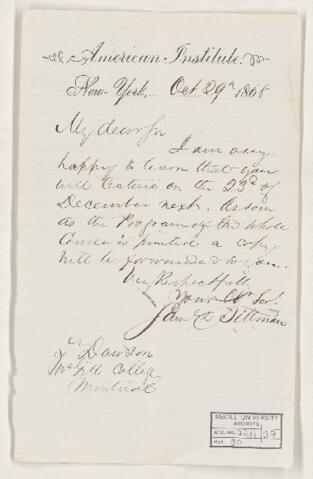 American Institute.
New-York, Oct 29th 1868
My dear Sir
I am very
happy to learn that you
will lecture on the 23d of
December next. As soon
as the Program of the whole
Course is printed a copy
will be forwarded to you.
Very Respectfully
Your Obt Servt.
Saml D Tillman
J Dawson
McGill College
Montreal
McGILL UNIVERSITY
ARCHIVES
ACC. NO. 2211 37
REF.